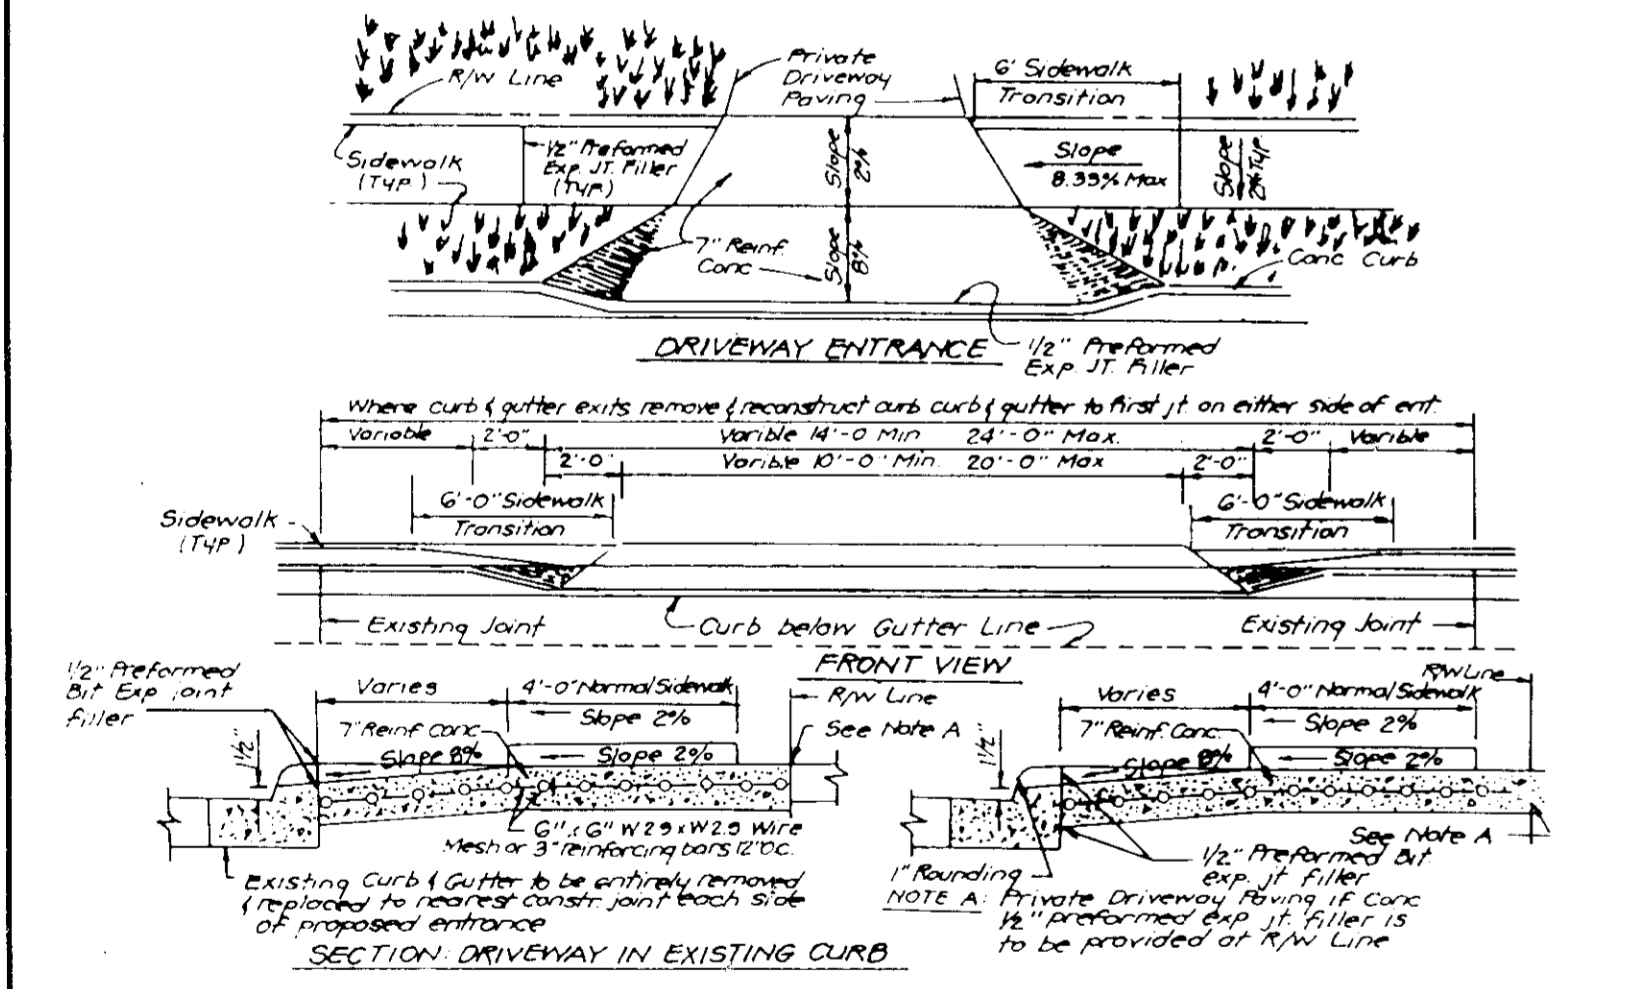 R/W Line
Private
Driveway
Paving
6' Sidewalk
Transition
Sidewalk
(TYP.)
1/2" Preformed
Exp. JT. Filler
(TYP.)
Slope
2%
Slope
8.33% Max
Slope
2% Typ.
7" Reinf.
Conc
Slope
8%
Conc Curb
DRIVEWAY ENTRANCE
1/2" Preformed
Exp. JT. Filler
Where curb & gutter exits remove & reconstruct curb curb & gutter to first jt. on either side of ent.
Variable
2'-0"
Varible 14'-0 Min 24'-0" Max.
2'-0"
Varible
2'-0"
Varible 10'-0" Min. 20'-0" Max
2'-0"
6'-0" Sidewalk
Transition
6'-0" Sidewalk
Transition
Sidewalk
(TYP.)
Existing Joint
Curb below Gutter Line
Existing Joint
FRONT VIEW
1/2" Preformed
Bit Exp joint
filler
Varies
4'-0" Normal Sidewalk
Slope 2%
R/W Line
7" Reinf Conc
See Note A
Slope 8%
Slope 2%
1 1/2"
6" x 6" W2.9 x W2.9 Wire
Mesh or 3" reinforcing bars 12" O.C.
Existing Curb & Gutter to be entirely removed
& replaced to nearest constr. joint each side
of proposed entrance
SECTION: DRIVEWAY IN EXISTING CURB
R/W Line
Varies
4'-0" Normal Sidewalk
Slope 2%
7" Reinf. Conc
Slope 8%
Slope 2%
1 1/2"
See Note A
1/2" Preformed Bit
exp. jt filler
1" Rounding
NOTE A: Private Driveway Paving if Conc
1/2" preformed exp jt. filler is
to be provided at R/W Line